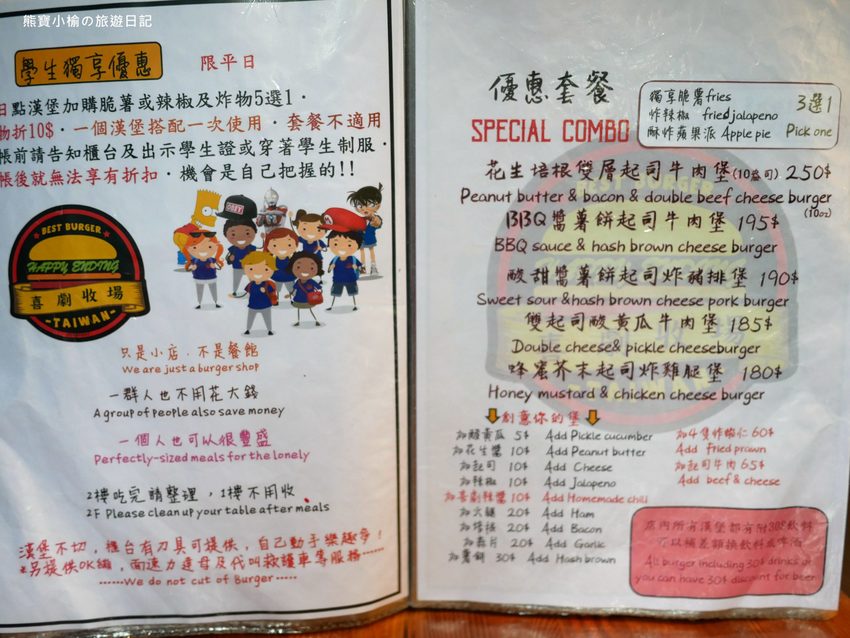 熊寶小榆の旅遊日記
學生獨享優惠
限平日
日點漢堡加購脆薯或辣椒及炸物5選1·
物折10$·一個漢堡搭配一次使用·套餐不適用
帳前請告知櫃台及出示學生證或穿著學生制服·
帳後就無法享有折扣·機會是自己把握的!!
BEST BURGER
HAPPY ENDING
喜劇收場
~TAIWAN~
OBEY
M
只是小店·不是餐館
We are just a burger shop
一群人也不用花大錢
A group of people also save money
一個人也可以很豐盛
Perfectly-sized meals for the lonely
2樓吃完請整理，1樓不用收
2F Please clean up your table after meals
漢堡不切，櫃台有刀具可提供，自己動手樂趣多！
*另提供OK繃，面速力達母及代叫救護車等服務······
······We do not cut of Burger······
優惠套餐
SPECIAL COMBO
獨享脆薯fries
炸辣椒 fried jalapeno
酥炸蘋果派 Apple pie
3選1
Pick one
花生培根雙層起司牛肉堡(10盎司) 250$
Peanut butter & bacon & double beef cheese burger
(10oz)
BBQ醬薯餅起司牛肉堡 195$
BBQ sauce & hash brown cheese burger
酸甜醬薯餅起司炸豬排堡 190$
Sweet sour &hash brown cheese pork burger
雙起司酸黃瓜牛肉堡 185$
Double cheese& pickle cheeseburger
蜂蜜芥末起司炸雞腿堡 180$
Honey mustard & chicken cheese burger
創意你的堡
加酸黃瓜 5$ Add Pickle cucumber
加花生醬 10$ Add Peanut butter
加起司 10$ Add Cheese
加辣椒 10$ Add Jalapeno
加喜劇辣醬 10$ Add Homemade chili
加火腿 20$ Add Ham
加培根 20$ Add Bacon
加蒜片 20$ Add Garlic
加薯餅 30$ Add Hash brown
加4隻炸蝦仁 60$
Add fried prawn
加起司牛肉 65$
Add beef & cheese
店內所有漢堡都有附30$飲料
可以補差額換飲料或啤酒
All burger including 30$ drinks or
you can have 30$ discount for beer